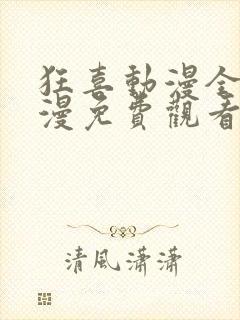 狂喜動漫全
漫免費觀看
清風瀟瀟